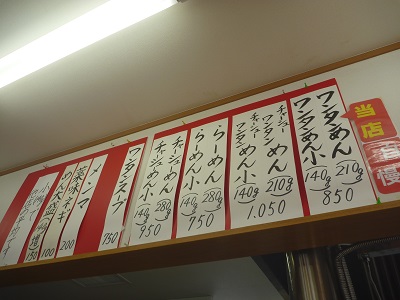 当店自慢
ワンタンめん 210g
ワンタンめん小 140g
850
チャーシューワンタンめん 210g
チャーシューワンタンめん小 140g
1.050
らーめん 280g
らーめん小 140g
750
チャーシューめん 280g
チャーシューめん小 140g
950
ワンタンスープ 750
メンマ
薬味ネギ 200
めん大盛 100